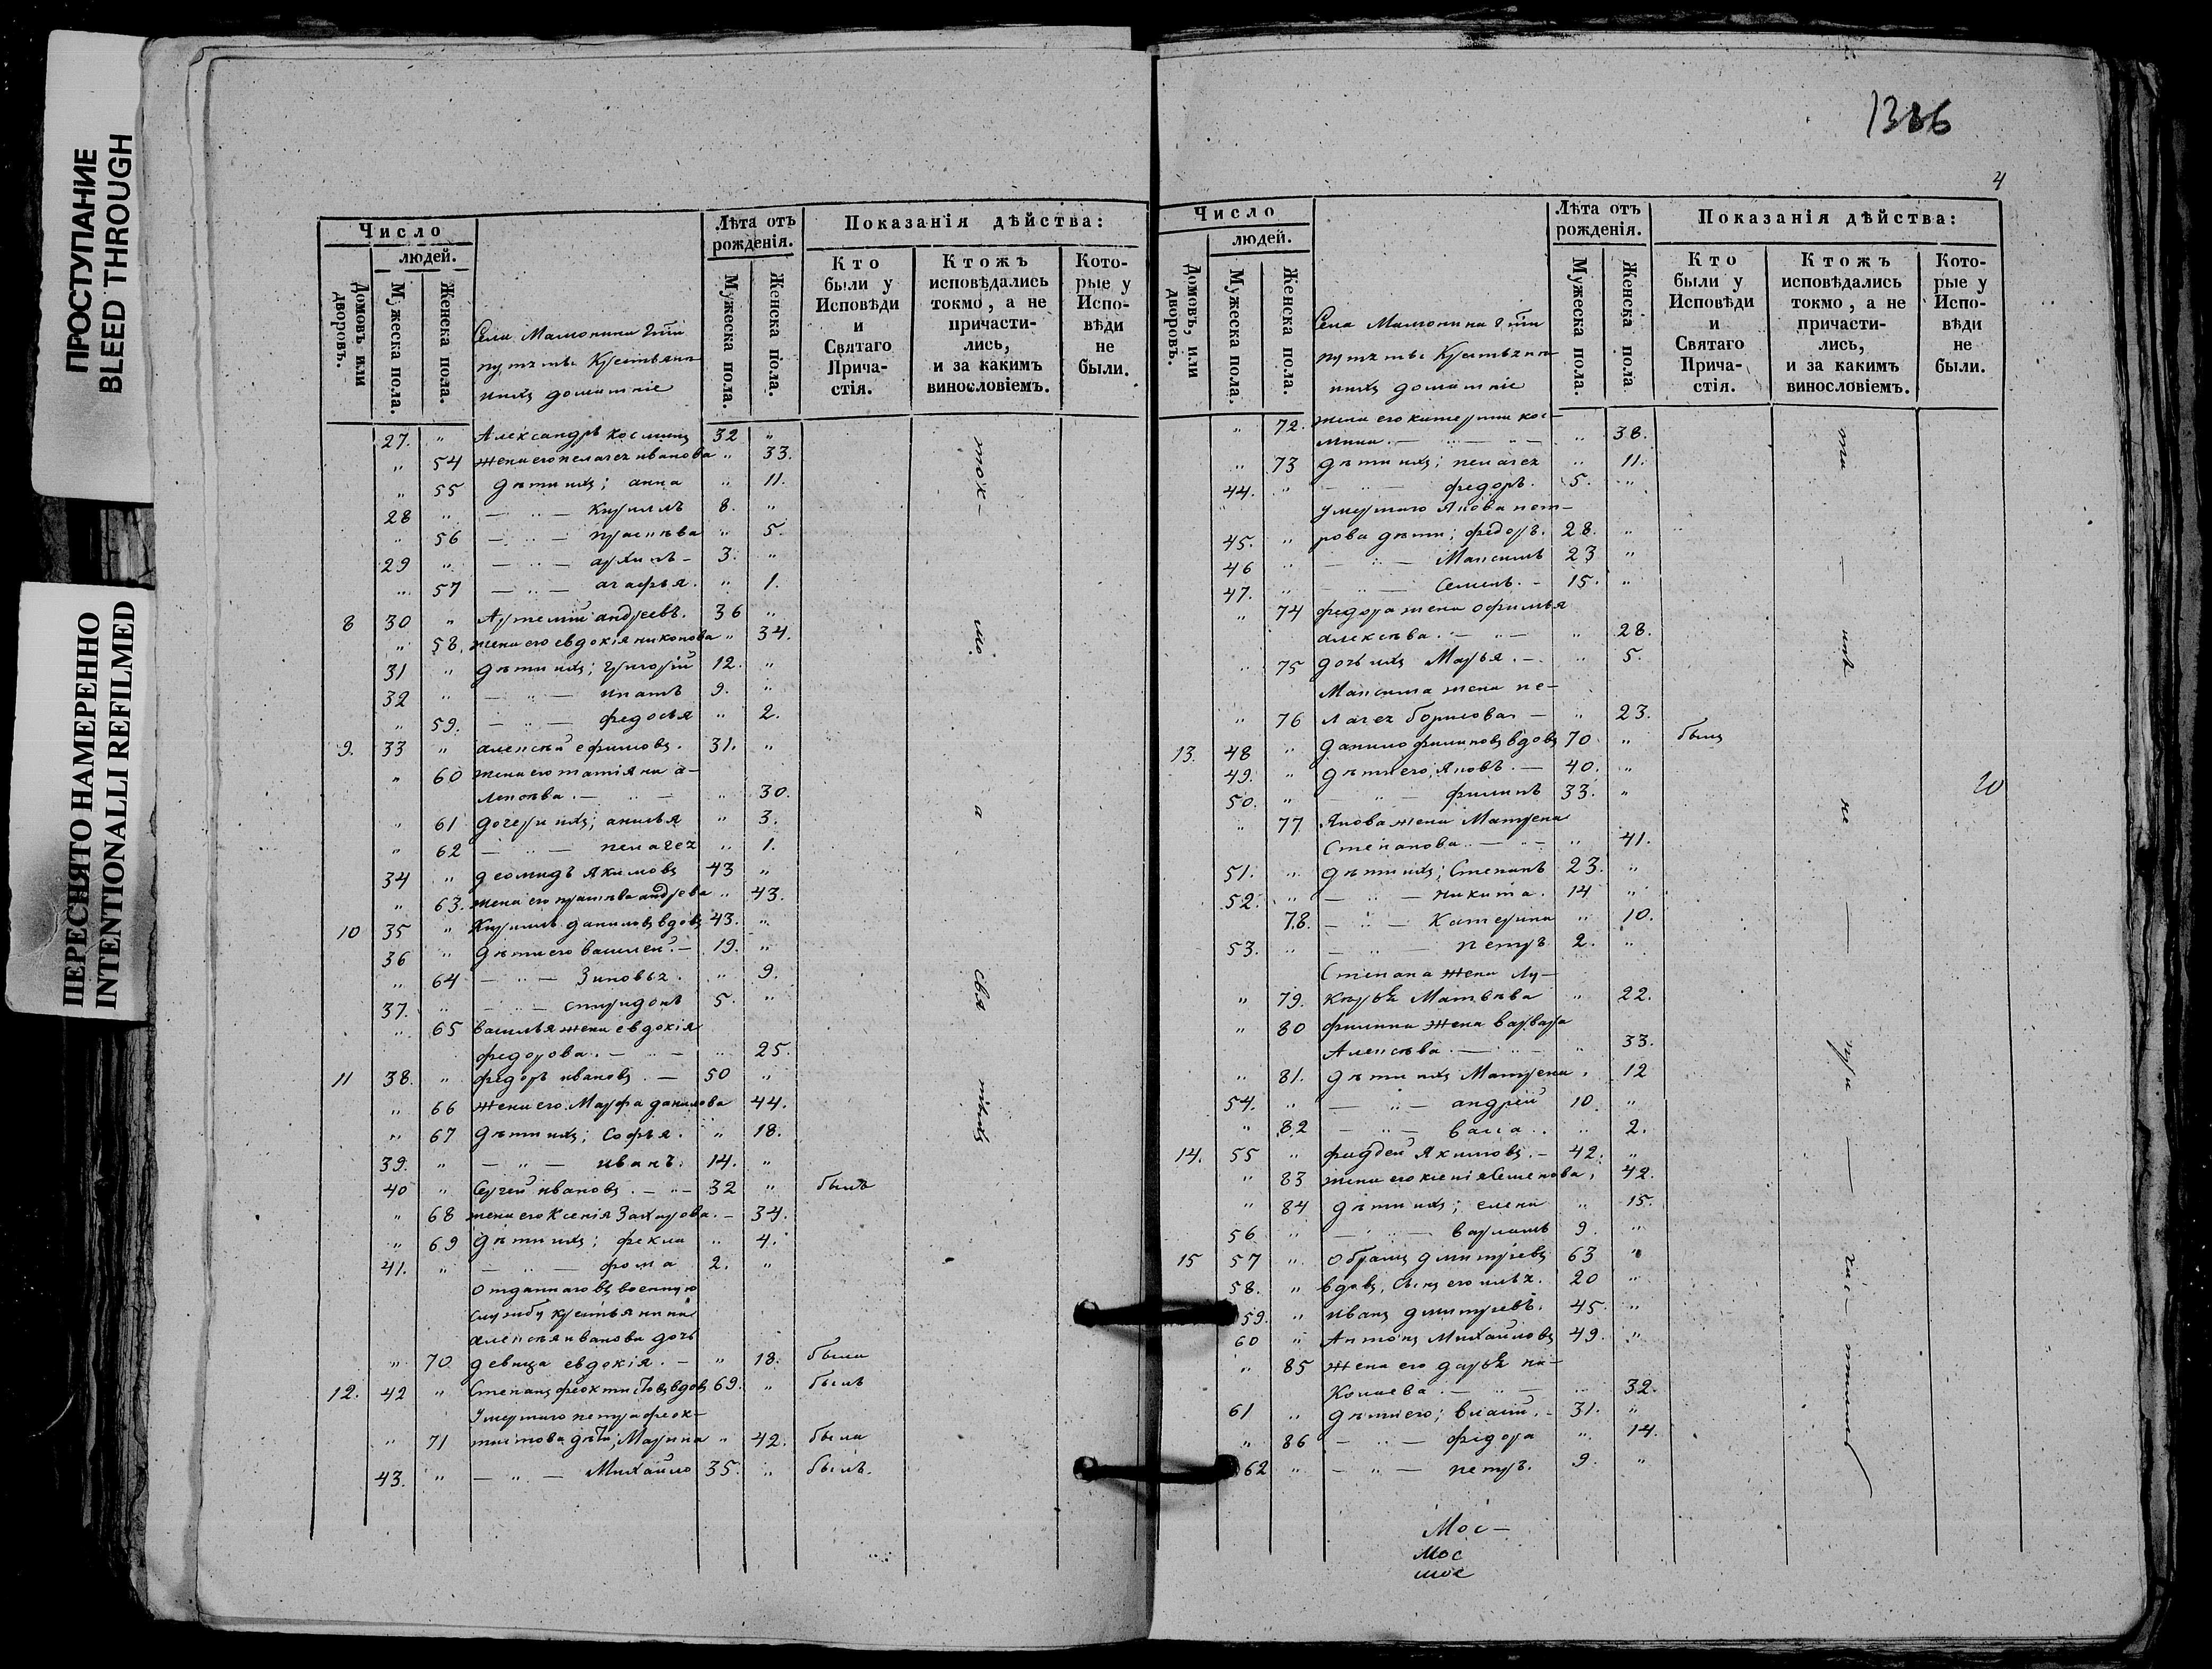 ПРОСТУПАНИЕ
BLEED THROUGH
ПЕРЕСНЯТО НАМЕРЕННО
INTENTIONALLI REFILMED
Число
людей.
Домовъ или дворовъ.
Мужеска пола.
Женска пола.
Села Мамонина
домашніе
Лѣта отъ рожденія.
Мужеска пола.
Женска пола.
Показанія дѣйства:
Кто были у Исповѣди и Святаго Прича-стія.
Ктожъ исповѣдались токмо, а не причасти-лись, и за какимъ винословіемъ.
Кото-рые у Испо-вѣди не были.
27. " Александръ косминъ 32 "
" 54 жена его пелагея иванова " 33.
" 55 дѣти ихъ; анна " 11.
28 " — " — Кириллъ 8. "
" 56 — " — прасковья " 5.
29 " — " — архипъ - 3. "
" 57 — " — агафья. " 1.
8 30 " Артемій андреевъ. 36 "
" 58. жена его евдокія никонова " 34.
31 " дѣти ихъ; григорій 12. "
32 " — " — игнатъ 9. "
" 59. — " — федосья " 2.
9. 33 " алексѣй ефимовъ. 31. "
" 60 жена его татіяна а-
лексѣва. — " — " 30.
" 61 дочери ихъ; акилья " 3.
" 62 — " — пелагея " 1.
34 " деомидъ Якимовъ 43 "
" 63. жена его прасковья андрева " 43.
10 35 " Кириллъ даниловъ вдовъ 43. "
36 " дѣти его василей. — 19. "
" 64 — " — Зиновья. " 9.
37. " — " — спиридонъ 5. "
" 65 василья жена евдокія
федорова. — " — " 25.
11 38. " федоръ ивановъ. — 50 "
" 66 жена его Марфа данилова 44.
" 67 дѣти ихъ; Софья. " 18.
39. " — " — иванъ. 14. "
40 " Сергей ивановъ. — " — 32 " былъ
" 68 жена его Ксенія Захарова. — 34.
" 69 дѣти ихъ; фекла " 4.
41. " — " — фома 2. "
Отданнаго въ военную
службу крестьянина
алексѣя иванова дочь
" 70 девица евдокія. — " 18. была
12. 42 " Степанъ феоктистовъ вдовъ 69. " былъ
Умершаго петра феок-
" 71 тистова дѣти; Марина " 42. была
43. " — " — Михайло 35. " былъ.
1386
4
Число
людей.
Домовъ, или дворовъ.
Мужеска пола.
Женска пола.
Села Мамонина
домашніе
Лѣта отъ рожденія.
Мужеска пола.
Женска пола
Показанія дѣйства:
Кто были у Исповѣди и Святаго Прича-стія.
Ктожъ исповѣдались токмо, а не причасти-лись, и за какимъ винословіемъ.
Кото-рые у Испо-вѣди не были.
" 72. жена его катерина кос-
мина. — " — " — " 38.
" 73 дѣти ихъ; пелагея " 11.
44. " — " — федоръ. 5. "
умершаго Якова пет-
45. " рова дѣти; федоръ. 28. "
46 " — " — Максимъ 23 "
47. " — " — Семенъ. - 15. "
" 74 федора жена офимья
алексѣва. — " — " 28.
" 75 дочь ихъ Марья. — " 5.
Максима жена пе-
" 76 лагея борисова — " 23.
13. 48 " данило филиповъ вдовъ 70 " былъ
49. " дѣти его, Яковъ. — 40. "
50. " — " — филипъ 33. "
" 77 Якова жена Матрена
Степанова. — " — " 41.
51. " дѣти ихъ; Степанъ 23. "
52. " — " — никита. 14 "
78. — " — Катерина " 10.
53. " — " — петръ 2. "
Степана жена лу-
" 79. керья Матвѣва " 22.
" 80 филипа жена варвара
Алексѣва. — " — " 33.
" 81. дѣти ихъ Матрена. 12
54. " — " — андрей 10. "
" 82 — " — васса. " 2.
14. 55 " фадѣй Якимовъ. — 42. "
" 83 жена его ксенія Семенова. 42.
" 84 дѣти ихъ; елена " 15.
56 " — " — варламъ 9. "
15 57 " обрамъ дмитріевъ 63 "
58. " вдовъ, сынъ его илья. 20 "
59. " иванъ дмитріевъ. 45. "
60 " Антонъ Михайловъ 49. "
" 85 жена его дарья ни-
Колаева. — " — " 32.
61 " дѣти его; власій. - 31. "
" 86 — " — федора " 14.
62 " — " — петръ. 9. "
20
Мос —
Мос
мос